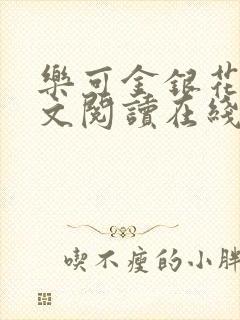 樂可金銀花
文閱讀在綫
喫不瘦的小胖